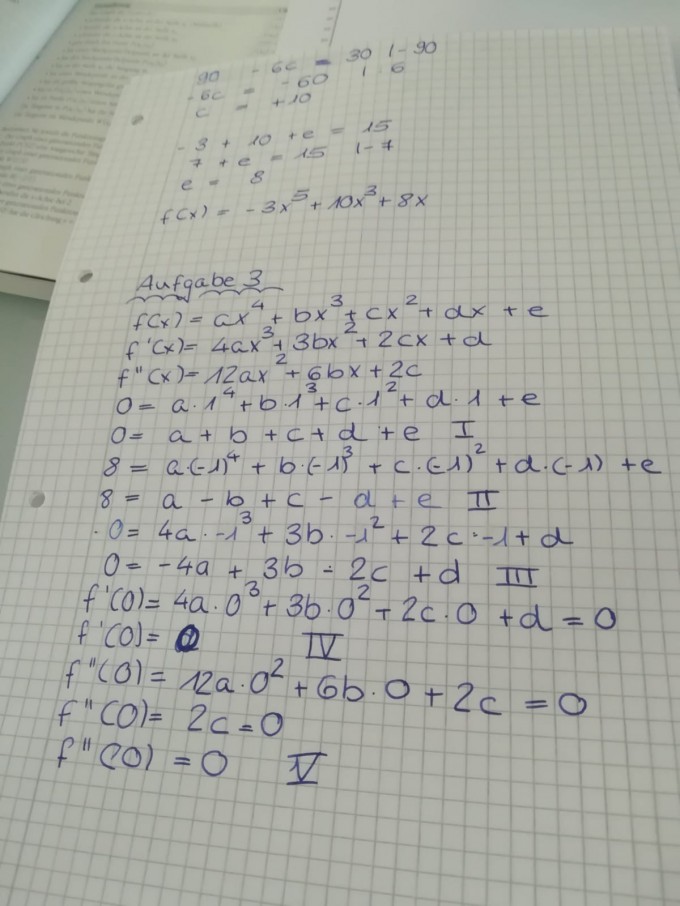 90 - 6c = 30 | - 90
-6c = -60 | 6
c = +10
-3 + 10 + e = 15
7 + e = 15 | -7
e = 8
f(x) = -3x⁵ + 10x³ + 8x
Aufgabe 3
f(x) = ax⁴ + bx³ + cx² + dx + e
f'(x) = 4ax³ + 3bx² + 2cx + d
f"(x) = 12ax² + 6bx + 2c
0 = a·1⁴ + b·1³ + c·1² + d·1 + e
0 = a + b + c + d + e I
8 = a·(-1)⁴ + b·(-1)³ + c·(-1)² + d·(-1) + e
8 = a - b + c - d + e II
0 = 4a·-1³ + 3b·-1² + 2c·-1 + d
0 = -4a + 3b - 2c + d III
f'(0) = 4a·0³ + 3b·0² + 2c·0 + d = 0
f'(0) = 0 IV
f"(0) = 12a·0² + 6b·0 + 2c = 0
f"(0) = 2c = 0
f"(0) = 0 V